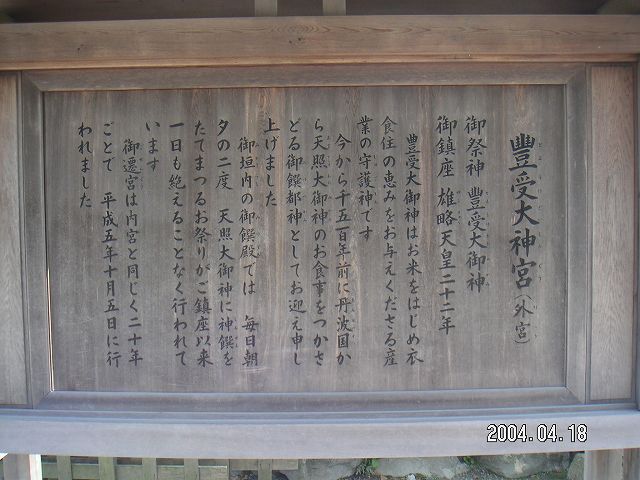 豐受大神宮（外宮）
御祭神　豐受大御神
御鎮座　雄略天皇二十二年
豐受大御神はお米をはじめ衣
食住の恵みをお与えくださる産
業の守護神です
今から千五百年前に丹波国か
ら天照大御神のお食事をつかさ
どる御饌都神としてお迎え申し
上げました
御垣内の御饌殿では　毎日朝
夕の二度　天照大御神に神饌を
たてまつるお祭りがご鎮座以来
一日も絶えることなく行われて
います
御遷宮は内宮と同じく二十年
ごとで　平成五年十月五日に行
われました
2004.04.18